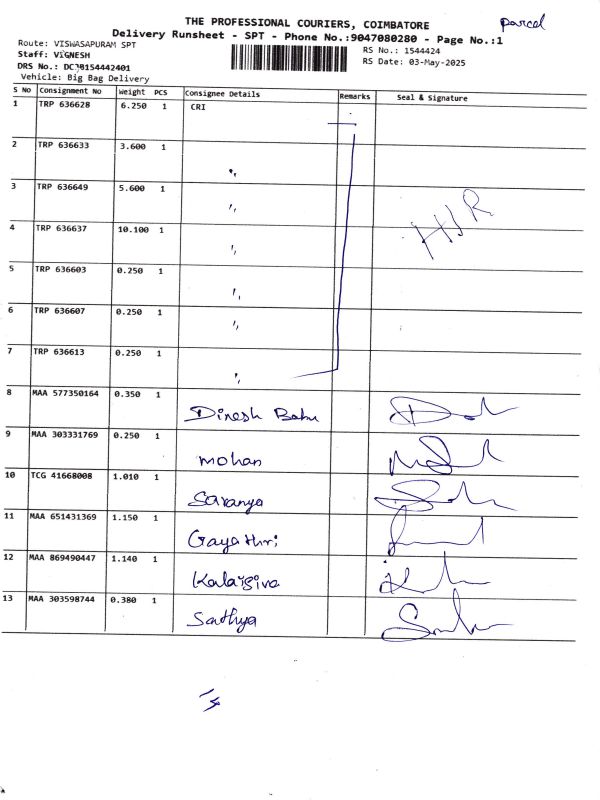 THE PROFESSIONAL COURIERS, COIMBATORE
parcel
Delivery Runsheet - SPT - Phone No.:9047080280 - Page No.:1
Route: VISWASAPURAM SPT
RS No.: 1544424
Staff: VIGNESH
RS Date: 03-May-2025
DRS No.: DC3B154442401
Vehicle: Big Bag Delivery
S No Consignment No Weight PCS Consignee Details Remarks Seal & Signature
1 TRP 636628 6.250 1 CRI
2 TRP 636633 3.600 1 "
3 TRP 636649 5.600 1 "
4 TRP 636637 10.100 1 "
5 TRP 636603 0.250 1 "
6 TRP 636607 0.250 1 "
7 TRP 636613 0.250 1 "
8 MAA 577350164 0.350 1 Dinesh Babu
9 MAA 303331769 0.250 1 mohan
10 TCG 41668008 1.010 1 Saranya
11 MAA 651431369 1.150 1 Gayathri
12 MAA 869490447 1.140 1
13 MAA 303598744 0.380 1 Sathya